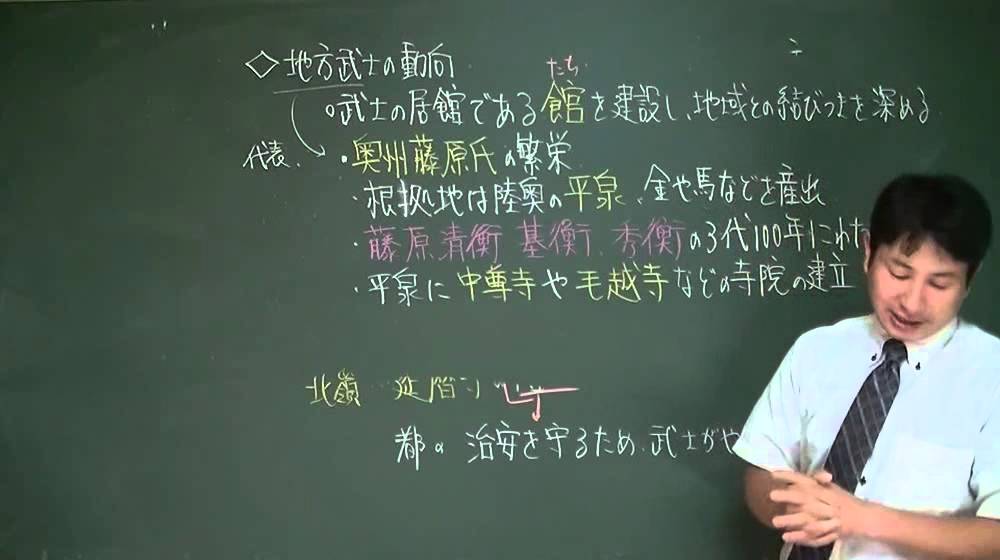 ◇地方武士の動向
たち
○武士の居館である館を建設し、地域との結びつきを深める
代表
・奥州藤原氏の繁栄
・根拠地は陸奥の平泉、金や馬などを産出
・藤原清衡 基衡、秀衡の3代100年にわた
・平泉に中尊寺や毛越寺などの寺院の建立
北嶺 延暦
都の治安を守るため、武士がや